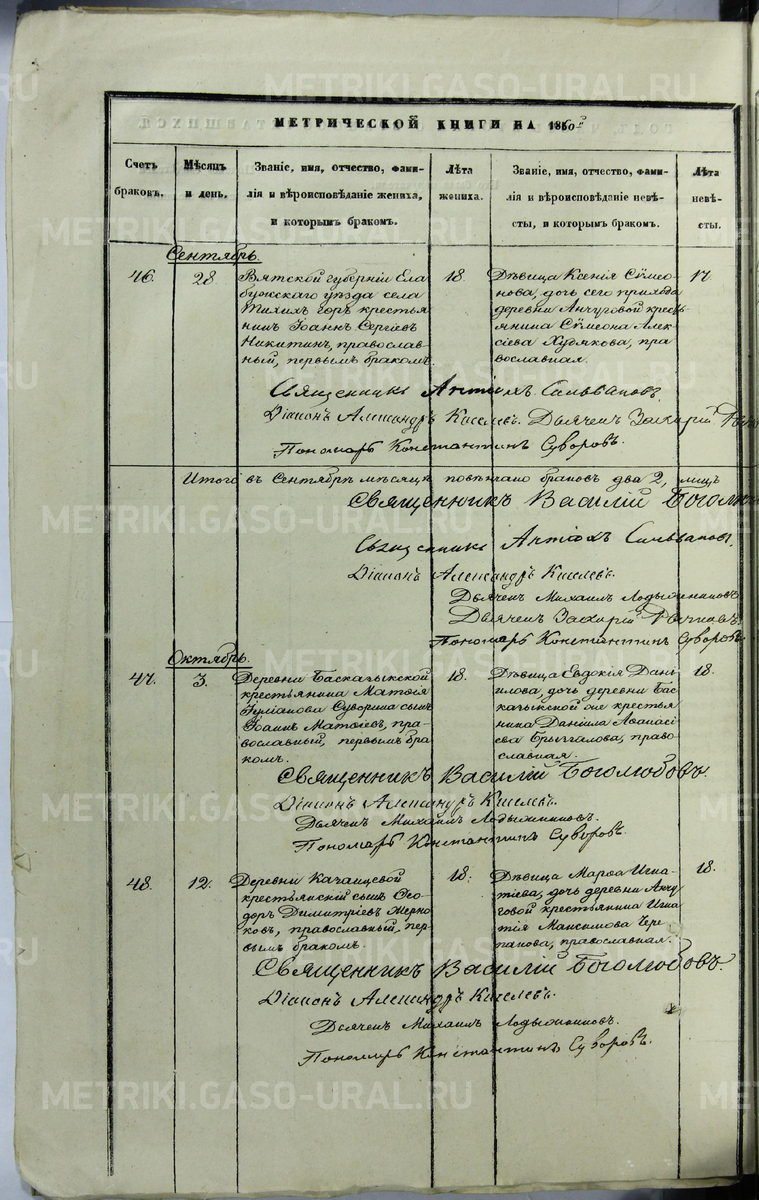 МЕТРИЧЕСКОЙ КНИГИ НА 1860й
Счетъ браковъ.
Мѣсяцъ и день.
Званіе, имя, отчество, фами-
лія и вѣроисповѣданіе жениха,
и которымъ бракомъ.
Лѣта жениха.
Званіе, имя, отчество, фами-
лія и вѣроисповѣданіе невѣ-
сты, и которымъ бракомъ.
Лѣта невѣ-
сты.
Сентябрь.
46. 28
Вятской губерніи Ела
бужскаго уѣзда села
Тихихъ горъ крестья
нинъ Іоаннъ Сергіевъ
Никитинъ, православ-
ный, первымъ бракомъ.
18.
Дѣвица Ксенія Сѵмео-
нова, дочь сего прихода
деревни Анчуговой кресть
янина Сѵмеона Алек-
сіева Худякова, пра
вославная.
17
Священникъ Антіохъ Сильвановъ.
Діаконъ Александръ Киселевъ. Дьячекъ Захарій
Пономарь Константинъ Суворовъ.
Итого въ Сентябрѣ мѣсяцѣ повѣнчано браковъ два 2, лицъ
Священникъ Василій Боголю
Священникъ Антіохъ Сильвановъ.
Діаконъ Александръ Киселевъ.
Дьячекъ Михаилъ Ладыжниковъ
Дьячекъ Захарій
Пономарь Константинъ Суворовъ.
Октябрь.
47. 3.
Деревни
крестьянина Матѳія
Суворина сынъ
Іоаннъ Матѳіевъ, пра-
вославный, первымъ бра
комъ.
18.
Дѣвица Евдокія Дані-
илова, дочь деревни Бас
же крестья
нина Даніила Аѳанасі
ева Брызгалова, право-
славная.
18.
Священникъ Василій Боголюбовъ.
Діаконъ Александръ Киселевъ.
Дьячекъ Михаилъ Ладыжниковъ.
Пономарь Константинъ Суворовъ.
48. 12.
Деревни
крестьянскій сынъ Ѳео
доръ Димитріевъ
ковъ, православный, пер
вымъ бракомъ.
18.
Дѣвица Марѳа Игна-
тіева, дочь деревни Анчу
говой крестьянина Игна
тія Максимова Чере
панова, православная.
18.
Священникъ Василій Боголюбовъ.
Діаконъ Александръ Киселевъ.
Дьячекъ Михаилъ Ладыжниковъ.
Пономарь Константинъ Суворовъ.
METRIKI.GASO-URAL.RU